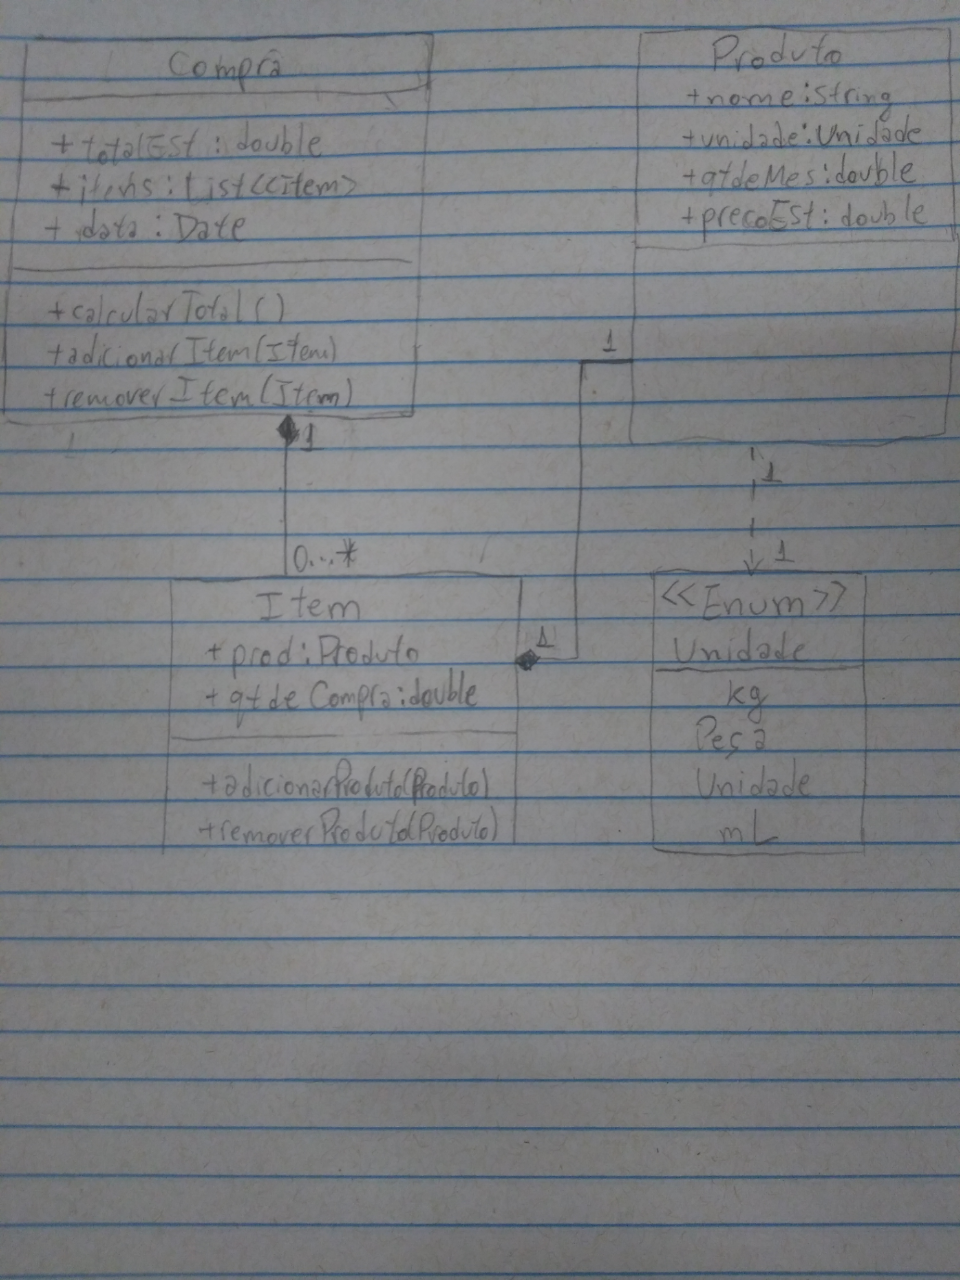 Compra
+ totalEst : double
+ itens : List<<item>
+ data : Date
+calcularTotal()
+adicionarItem(Item)
+removerItem(Item)
1
0...*
Produto
+nome:String
+unidade:Unidade
+qtdeMes:double
+precoEst:double
1
1
1
Item
+ prod:Produto
+ qtdeCompra:double
+adicionarProduto(Produto)
+removerProduto(Produto)
1
<<Enum>>
Unidade
kg
Peça
Unidade
mL